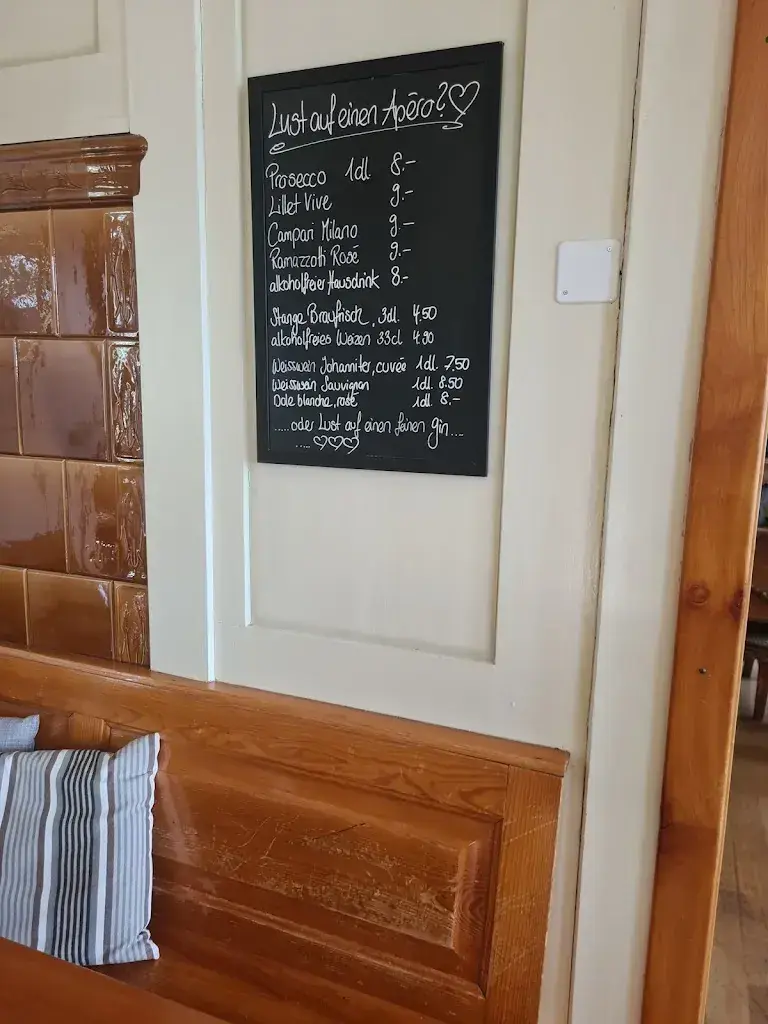 Lust auf einen Apéro?♡
Prosecco 1dl. 8.-
Lillet Vive 9.-
Campari Milano 9.-
Ramazzotti Rosé 9.-
alkoholfreier Hausdrink 8.-
Stange Braufrisch, 3dl. 4.50
alkoholfreies Weizen 33cl 4.90
Weisswein Johanniter, cuvée 1dl 7.50
Weisswein Sauvignon 1dl. 8.50
Oele blanche, rosé 1dl 8.-
.....oder Lust auf einen feinen gin....
....♡♡♡